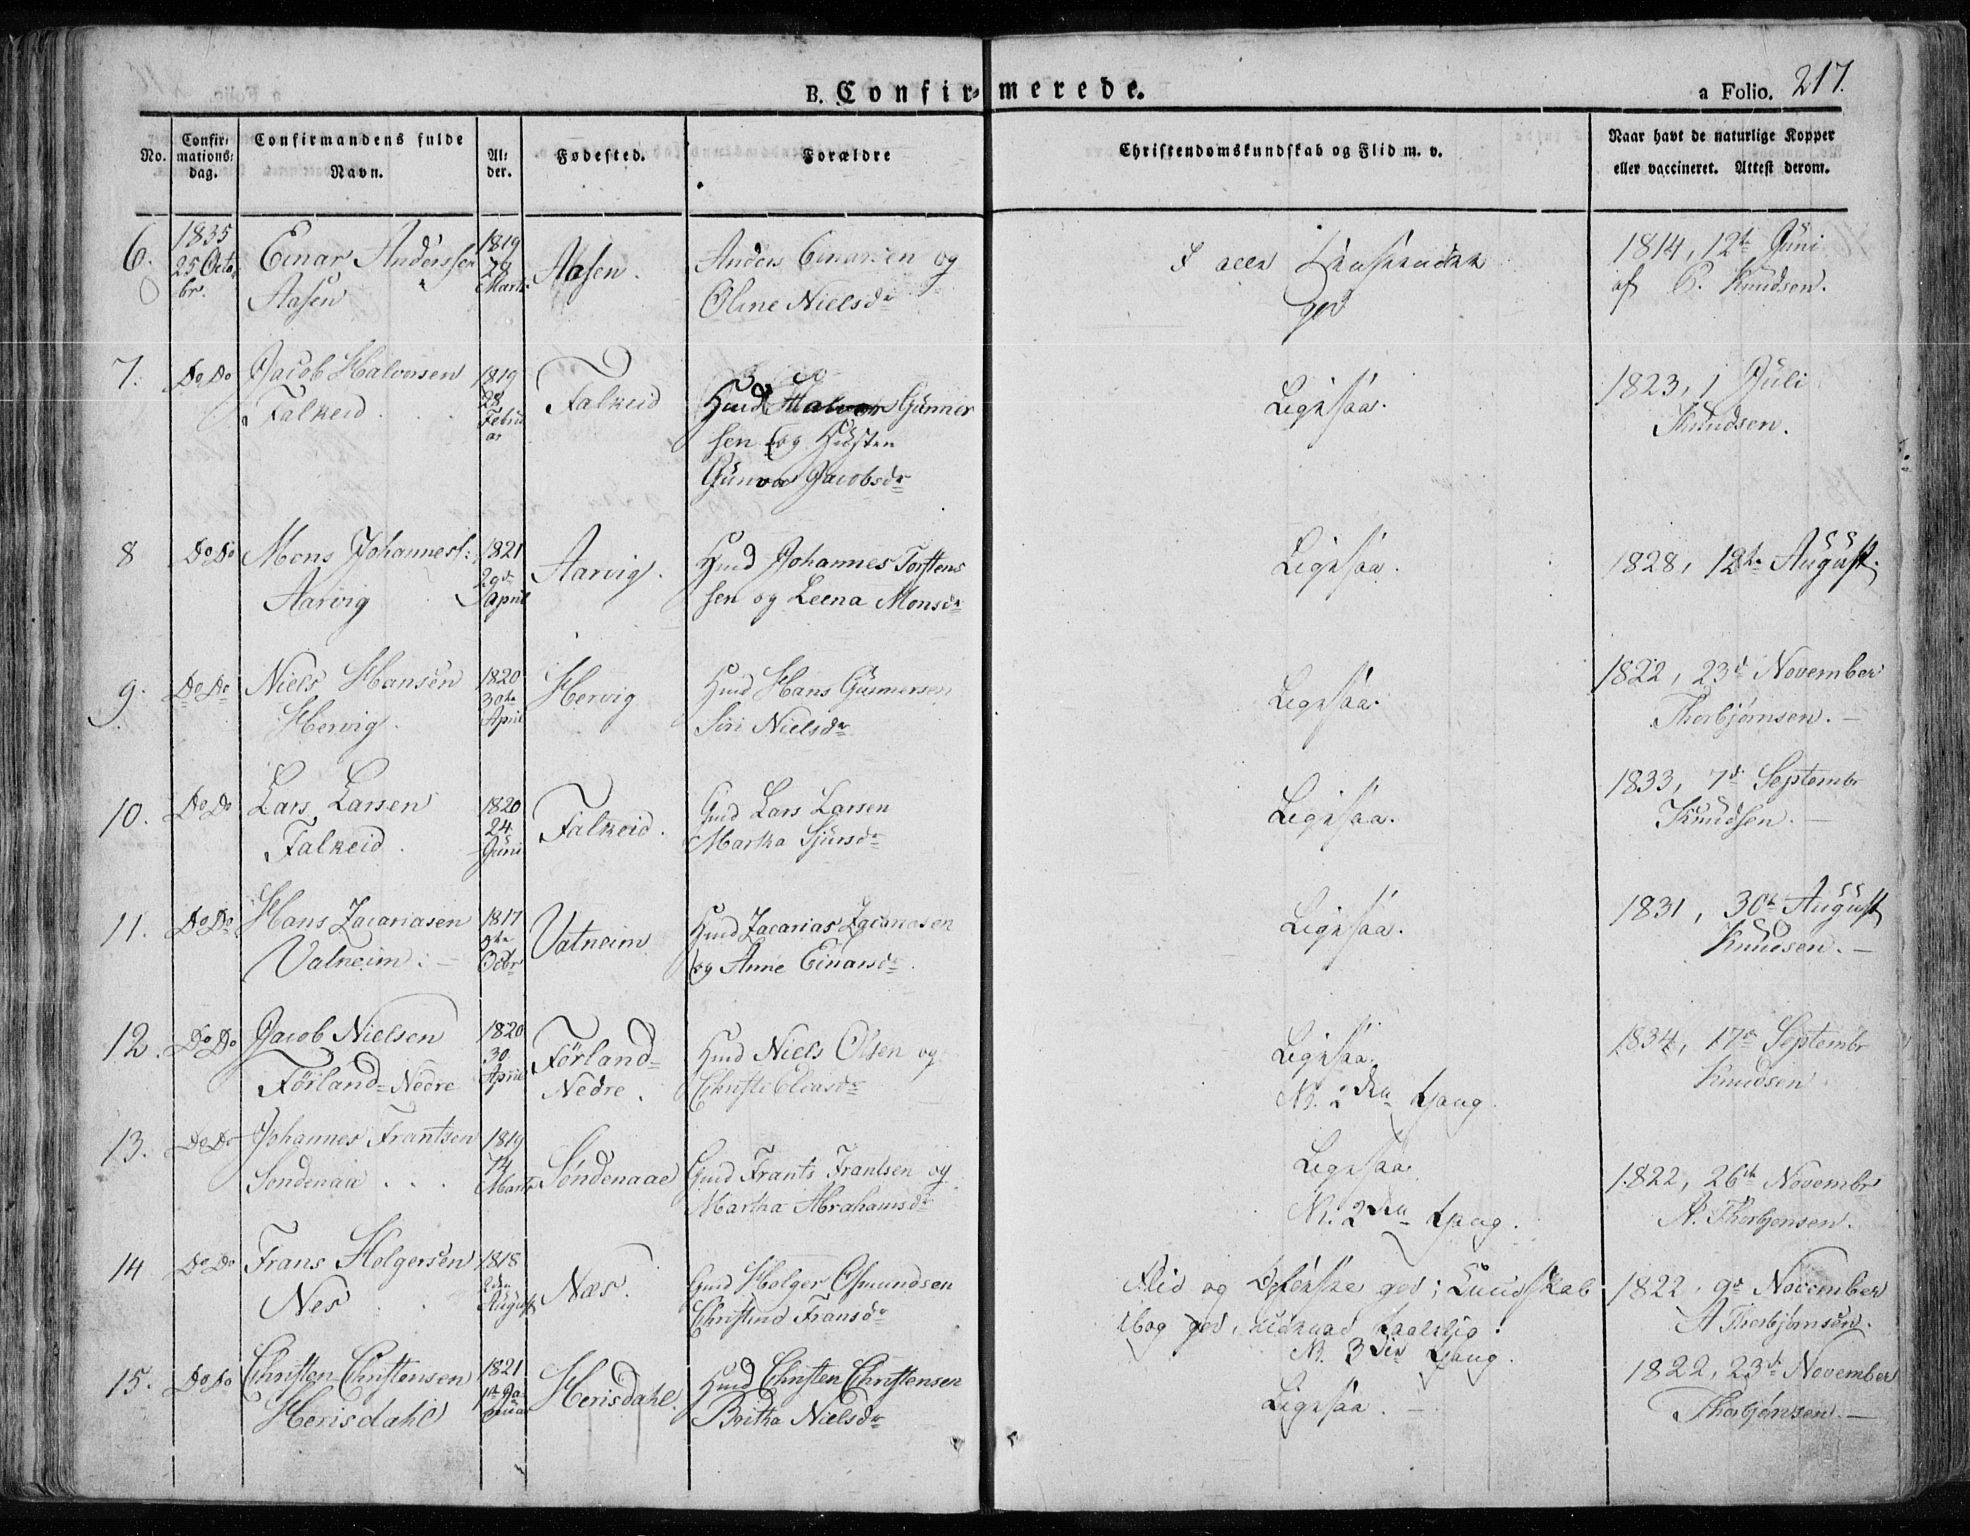 B. Confirmerede.
a Folio. 217.
No.
Confir-
mations-
dag.
Confirmandens fulde
Navn.
Al-
der.
Fødested.
Forældre
Christendomskundskab og Flid m. v.
Naar havt de naturlige Kopper
eller vaccineret. Attest derom.
6.
1835
25 Octo
br.
Einar Anderssen
Aasen
1819
28
Marts
Aasen.
Anders Einarsen og
Oline Nielsdr
I alle Henseender
god
1814, 12te Juni
af C. Knudsen.
7.
Do Do
Jacob Halvorsen
Falkeid.
1819
28
Febru
ar
Falkeid
Hmd Halvor Gunner
sen og Hustru
Gunvor Jacobsdr
Ligesaa.
1823, 1 Juli
Knudsen.
8
Do Do
Mons Johanness:
Aarvig
1821
29de
April
Aarvig.
Hmd Johannes Torstens
sen og Leena Monsdr
Ligesaa.
1828, 12te August.
9.
Do Do
Niels Hansen
Hervig.
1820
30te
April
Hervig
Hmd Hans Gunnersen
Siri Nielsdr
Ligesaa.
1822, 23d November
Thorbjørnsen. —
10.
Do Do
Lars Larsen
Falkeid.
1820
24
Juni
Falkeid.
Gmd Lars Larsen
Martha Sjursdr
Ligesaa.
1833, 7de Septembr
Knudsen. —
11.
Do Do
Hans Zacariasen
Vatneim. —
1817
9de
Octbr
Vatneim
Hmd Zacarias Zacariasen
og Anne Einarsdr.
Ligesaa.
1831, 30te August
Knudsen. —
12.
Do Do
Jacob Nielsen
Førland-Nedre
1820
30
April
Førland-
Nedre.
Hmd Niels Olsen og
Christi Eliasdr
Ligesaa.
NB. 2den Gang.
1834, 17de Septembr
Knudsen
13.
Do Do
Johannes Frantsen
Søndenaa . . .
1819
14
Marts
Søndenaae
Gmd Frants Frantsen og
Martha Abrahamsdr
Ligesaa
NB. 2den Gang.
1822, 26de Novembr
A. Thorbjønsen.
14
Do Do
Frans Holgersen
Nes
1818
2den
August
Næs.
Gmd Holger Osmundsen
Christina Fransdr
Flid og Opførsel god; Kundskab
i bog god, udenad taalelig.
NB. 3die Gang.
1822, 9de November
A Thorbjørnsen.
15.
Do Do
Christen Christensen
Herisdahl
1821
1ste Ja
nuar
Herisdahl.
Hmd Christen Christensen
Britha Nielsdr
Ligesaa. —
1822, 23de November
Thorbjørnsen. —